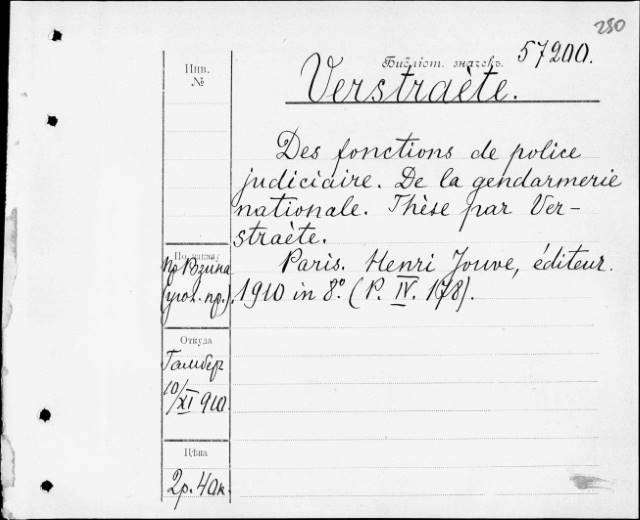 280
Инв.
№
Библіот. значекъ.
57200.
Verstraète.
Des fonctions de police
judiciaire. De la gendarmerie
nationale. Thèse par Ver-
straète.
Paris. Henri Jouve, éditeur.
1910 in 8º. (P. IV. 178).
По заказу
пр Розина
(угол. пр.).
Откуда
Гамбер
10/XI 910.
Цѣна
2р. 40к.